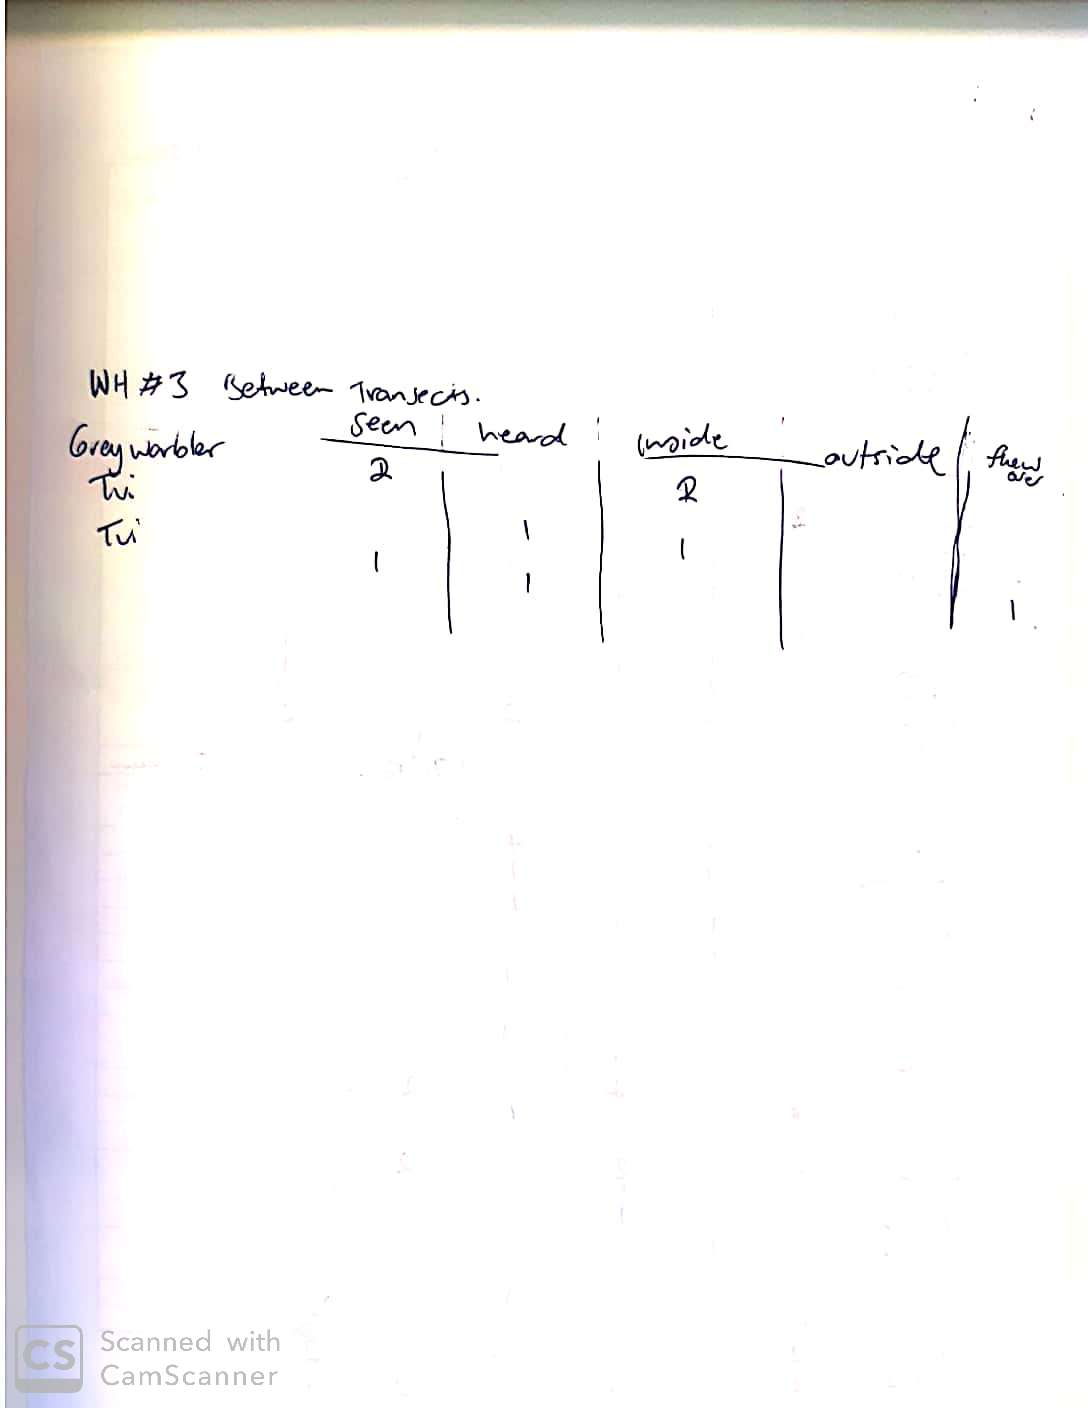 WH #3 Between Transects.
seen heard inside outside flew over
Grey warbler 2 2
Tui 1 1
Tui 1 1 1
Scanned with
CS CamScanner